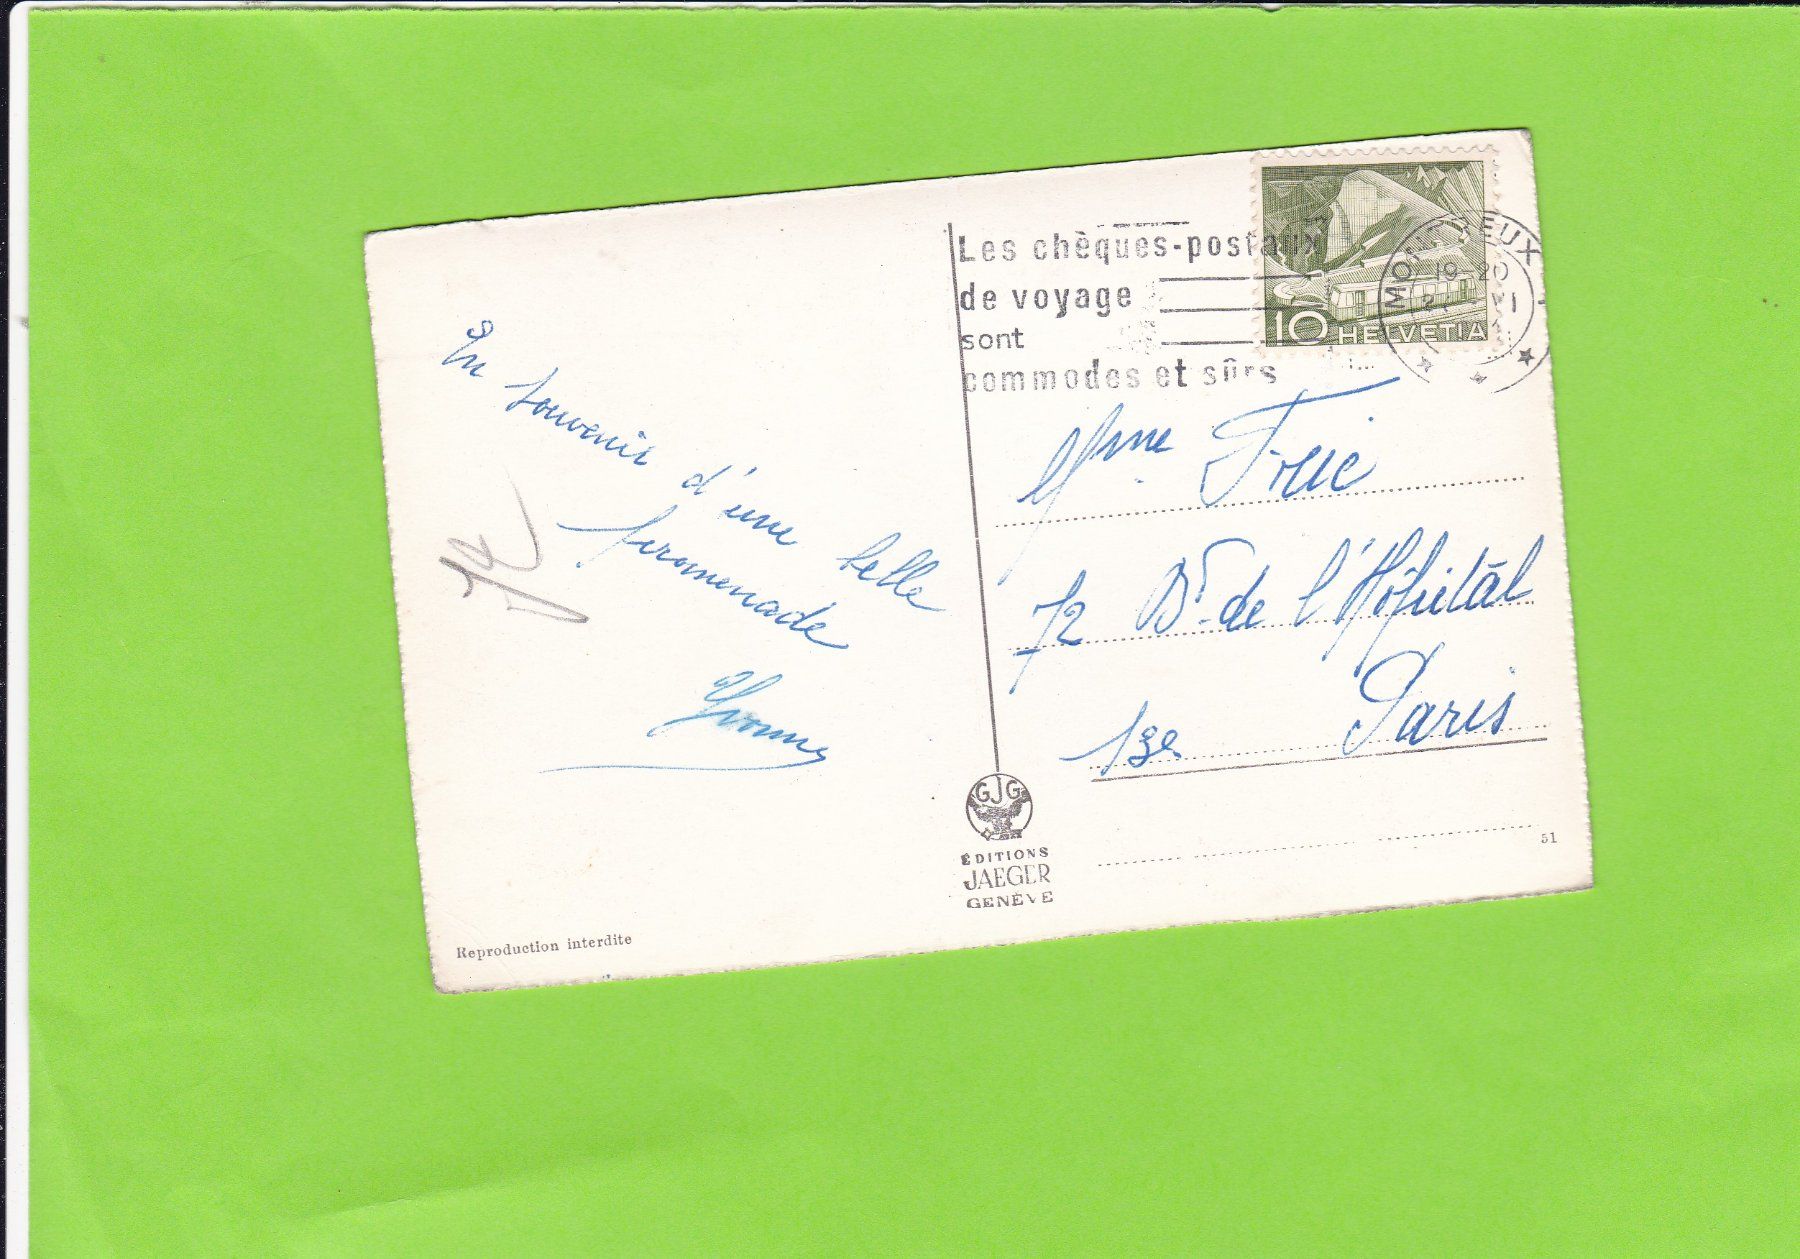 En souvenir
d'une belle
promenade
Yvonne
Reproduction interdite
Les chèques-postaux
de voyage
sont
commodes et sûrs
MONTREUX
19-20
VI
10 HELVETIA
Mme
72 Bd. de l'Hôpital
Paris
13e
GJG
ÉDITIONS
JAEGER
GENÈVE
51